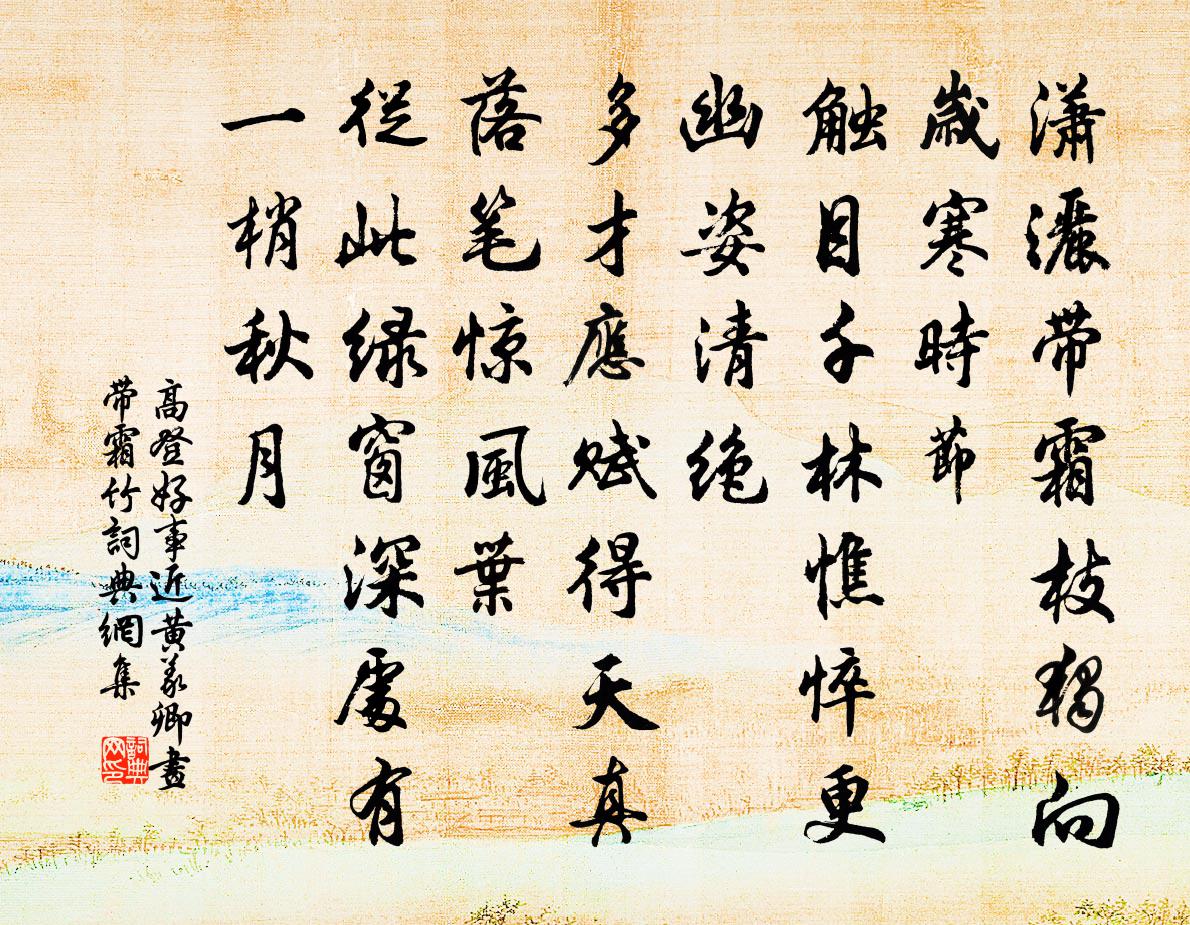 潇灑带霜枝獨向
歲寒時節
触目千林憔悴更
幽姿清绝
多才應赋得天真
落笔惊風葉
從此绿窗深處有
一梢秋月
高登好事近黄義卿畫
带霜竹詞典網集
詞典网印